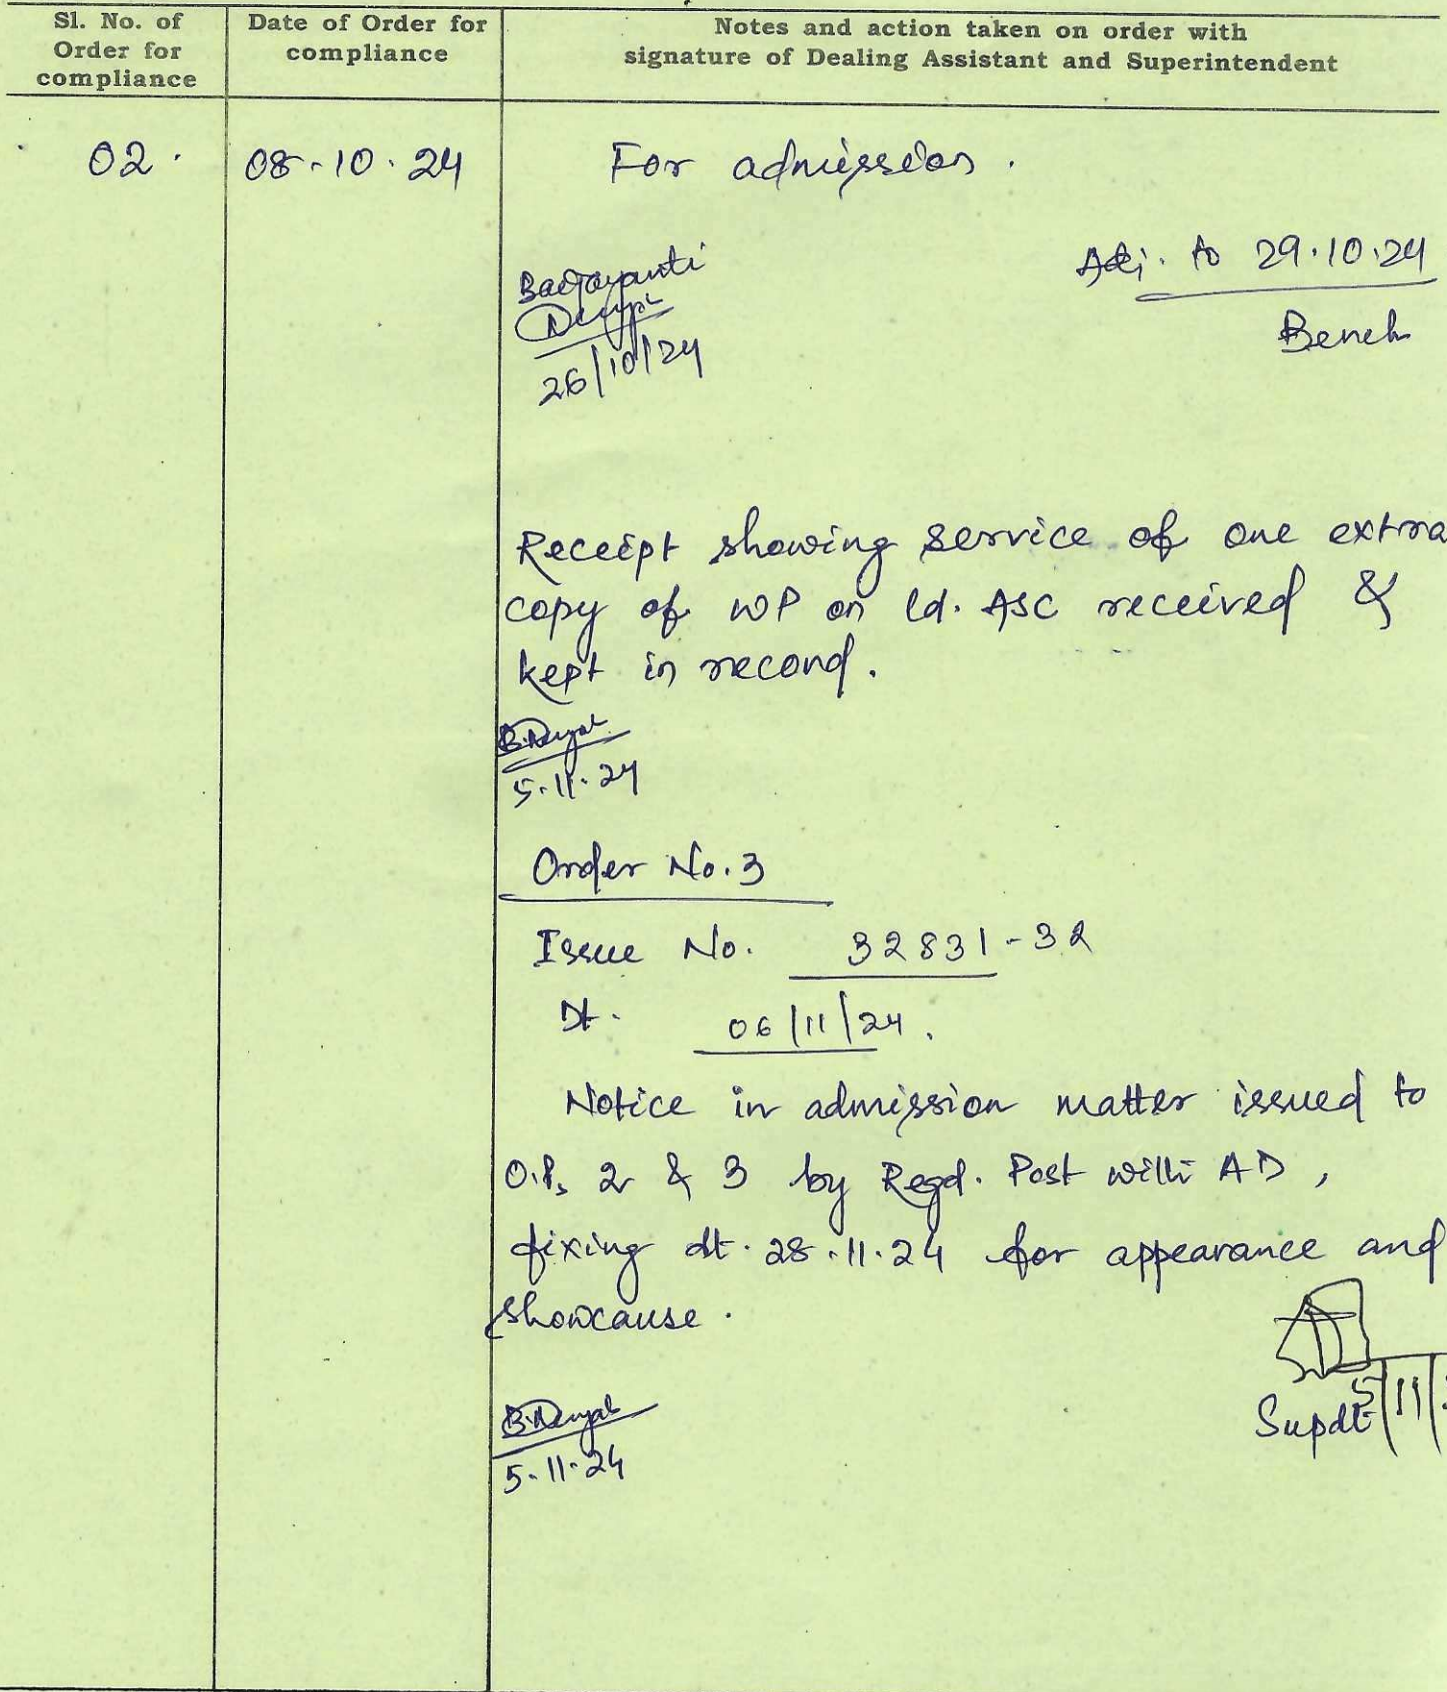 Sl. No. of
Order for
compliance
Date of Order for
compliance
Notes and action taken on order with
signature of Dealing Assistant and Superintendent
02.
08-10.24
For admission.
Adj. to 29.10.24
Bench
26/10/24
Receipt showing service of one extra
copy of WP on ld. ASC received &
kept in record.
5.11.24
Order No.3
Issue No. 32831-32
Dt. 06/11/24.
Notice in admission matter issued to
O.Ps 2 & 3 by Regd. Post with AD,
fixing dt. 28.11.24 for appearance and
showcause.
Supdt
5/11/
5.11.24